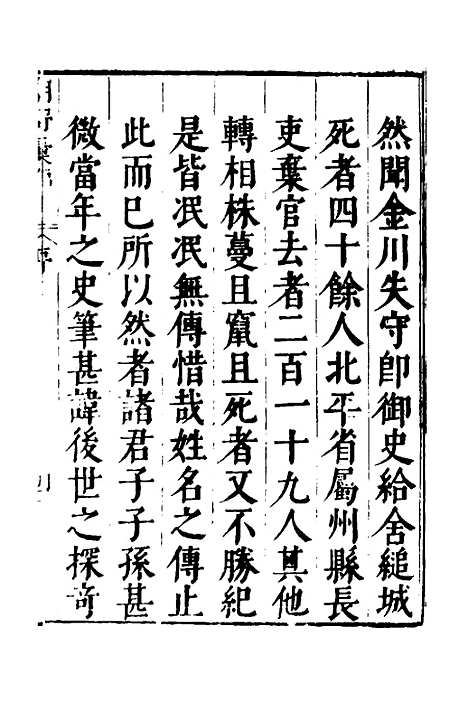 然聞金川失守卽御史給舍縋城
死者四十餘人北平省屬州縣長
吏棄官去者二百一十九人其他
轉相株蔓且竄且死者又不勝紀
是皆泯泯無傳惜哉姓名之傳止
此而已所以然者諸君子子孫甚
微當年之史筆甚諱後世之探奇